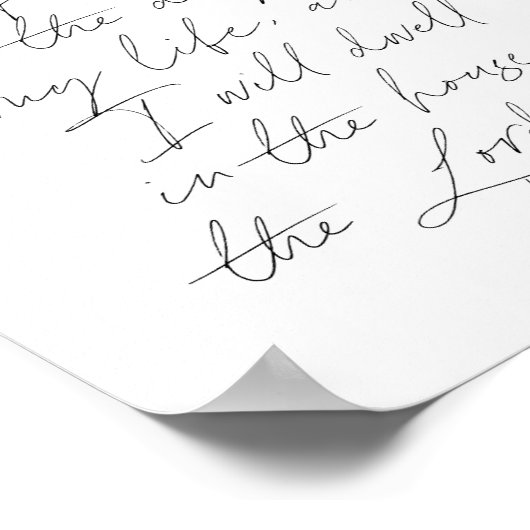 the
my life, a
I will dwell
in the house
the Lord